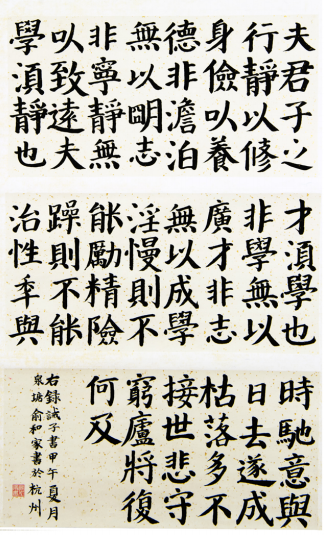 夫君子之
行靜以修
身儉㕥養
德非澹泊
無以明志
非寧靜無
㕥致遠夫
學湏靜也
才湏學也
非學無以
廣才非志
無以成學
淫慢則不
能勵精險
躁則不能
治性秊與
時馳意與
日去遂成
枯落多不
接世悲守
窮廬將復
何及
右錄誡子書甲午夏月
泉塘俞和家書於杭州